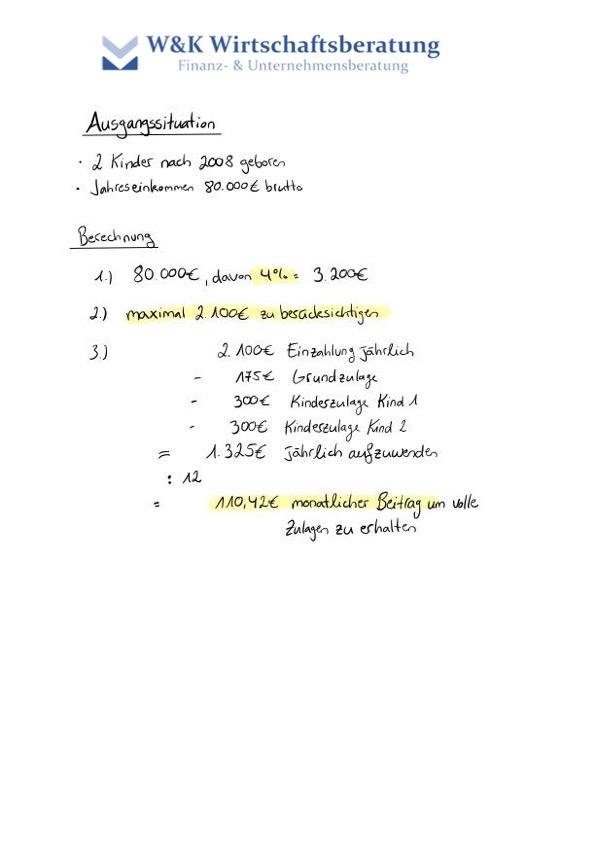 W&K Wirtschaftsberatung
Finanz- & Unternehmensberatung
Ausgangssituation
· 2 Kinder nach 2008 geboren
· Jahreseinkommen 80.000€ brutto
Berechnung
1.) 80.000€, davon 4% = 3.200€
2.) maximal 2.100€ zu berücksichtigen
3.) 2.100€ Einzahlung jährlich
- 175€ Grundzulage
- 300€ Kindeszulage Kind 1
- 300€ Kindeszulage Kind 2
= 1.325€ jährlich aufzuwenden
: 12
= 110,42€ monatlicher Beitrag um volle
Zulagen zu erhalten